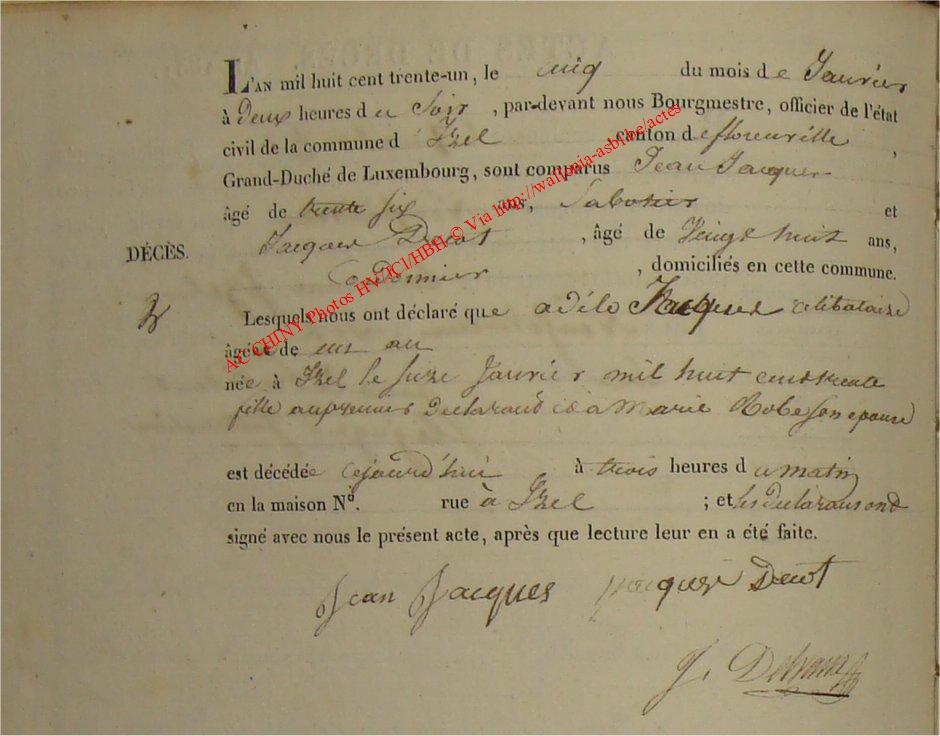 L'AN mil huit cent trente-un, le cinq du mois de Janvier
à deux heures du Soir, par-devant nous Bourgmestre, officier de l'état
civil de la commune d Izel, canton de florenville,
Grand-Duché de Luxembourg, sont comparus Jean Jacques
âgé de trente six ans, Sabotier et
Jacques , âgé de Vingt huit ans,
DÉCÈS. Cordonnier , domiciliés en cette commune.
Lesquels nous ont déclaré que adèle Jacques celibataire
âgée de un an
née à Izel le Janvier mil huit cent trente
fille au premier declarant et a Marie Robe son epouse
est décédée cejourd'hui à trois heures du matin
en la maison N°. rue à Izel ; et les declarans ont
signé avec nous le présent acte, après que lecture leur en a été faite.
Jean Jacques
J.
AC CHINY Photos HVJCl/HBH © Via http://wallonia-asbl.be/actes